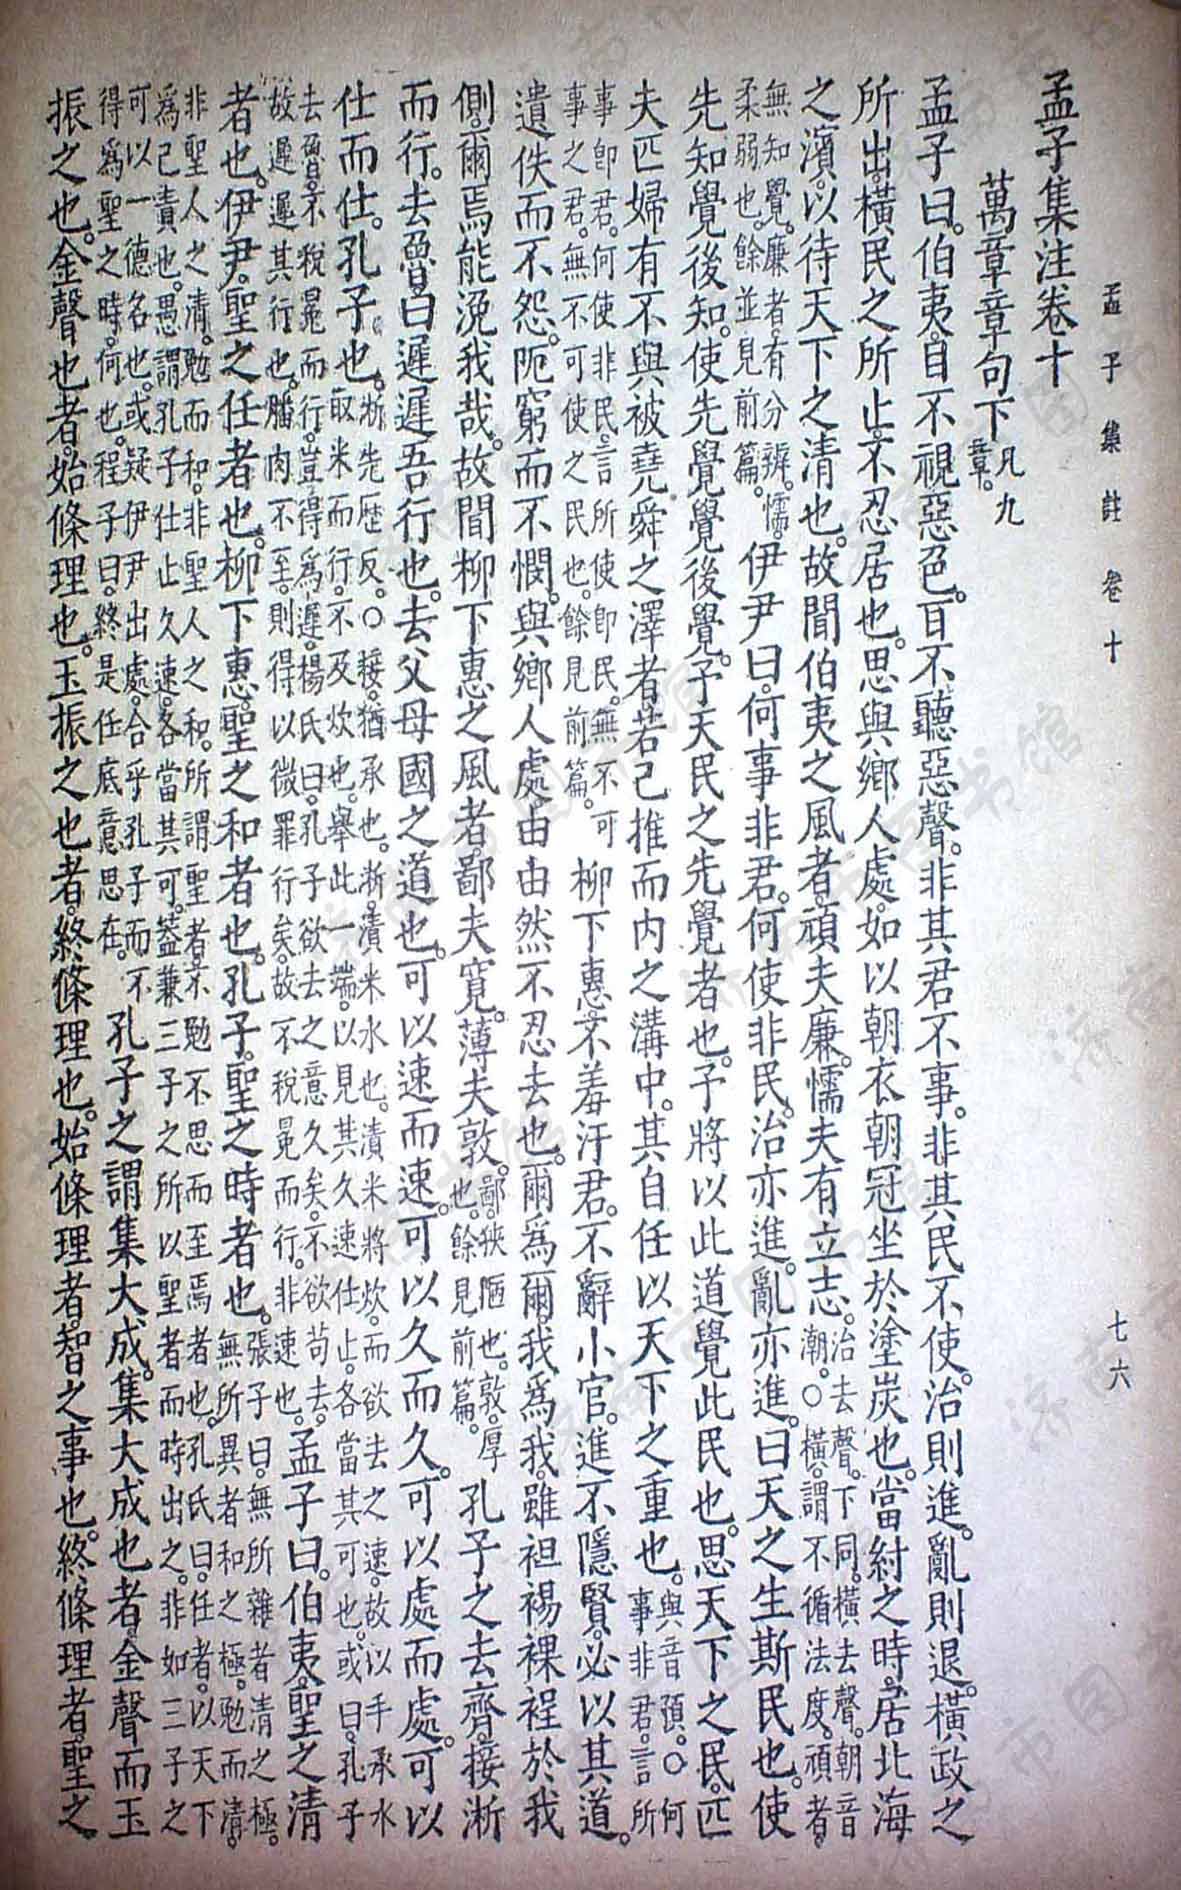 孟子集註卷十
七六
孟子集注卷十
萬章章句下凡九章。
孟子曰。伯夷。目不視惡色。耳不聽惡聲。非其君不事。非其民不使。治則進。亂則退。橫政之
所出。橫民之所止。不忍居也。思與鄉人處。如以朝衣朝冠坐於塗炭也。當紂之時。居北海
之濱。以待天下之清也。故聞伯夷之風者。頑夫廉。懦夫有立志。治去聲。下同。橫去聲。朝音潮。○橫。謂不循法度。頑者。
無知覺。廉者。有分辨。懦。柔弱也。餘並見前篇。伊尹曰。何事非君。何使非民。治亦進。亂亦進。曰天之生斯民也。使
先知覺後知。使先覺覺後覺。予天民之先覺者也。予將以此道覺此民也。思天下之民。匹
夫匹婦有不與被堯舜之澤者。若己推而內之溝中。其自任以天下之重也。與音預。○何事非君。言所
事即君。何使非民。言所使即民。無不可事之君。無不可使之民也。餘見前篇。柳下惠不羞汙君。不辭小官。進不隱賢。必以其道。
遺佚而不怨。阨窮而不憫。與鄉人處。由由然不忍去也。爾為爾。我為我。雖袒裼裸裎於我
側。爾焉能浼我哉。故聞柳下惠之風者。鄙夫寬。薄夫敦。鄙。狹陋也。敦。厚也。餘見前篇。孔子之去齊。接淅
而行。去魯。曰遲遲吾行也。去父母國之道也。可以速而速。可以久而久。可以處而處。可以
仕而仕。孔子也。淅先歷反。○接。猶承也。淅。漬米水也。漬米將炊。而欲去之速。故以手承水取米而行。不及炊也。舉此一端。以見其久速仕止。各當其可也。或曰。孔子
去魯。不稅冕而行。豈得為遲。楊氏曰。孔子欲去之意久矣。不欲苟去。故遲遲其行也。膰肉不至。則得以微罪行矣。故不稅冕而行。非速也。孟子曰。伯夷。聖之清
者也。伊尹。聖之任者也。柳下惠。聖之和者也。孔子。聖之時者也。張子曰。無所雜者清之極。無所異者和之極。勉而清。
非聖人之清。勉而和。非聖人之和。所謂聖者。不勉不思而至焉者也。孔氏曰。任者。以天下為己責也。愚謂孔子仕止久速。各當其可。蓋兼三子之所以聖者而時出之。非如三子之
可以一德名也。或疑伊尹出處。合乎孔子。而不得為聖之時。何也。程子曰。終是任底意思在。孔子之謂集大成。集大成也者。金聲而玉
振之也。金聲也者。始條理也。玉振之也者。終條理也。始條理者。智之事也。終條理者。聖之